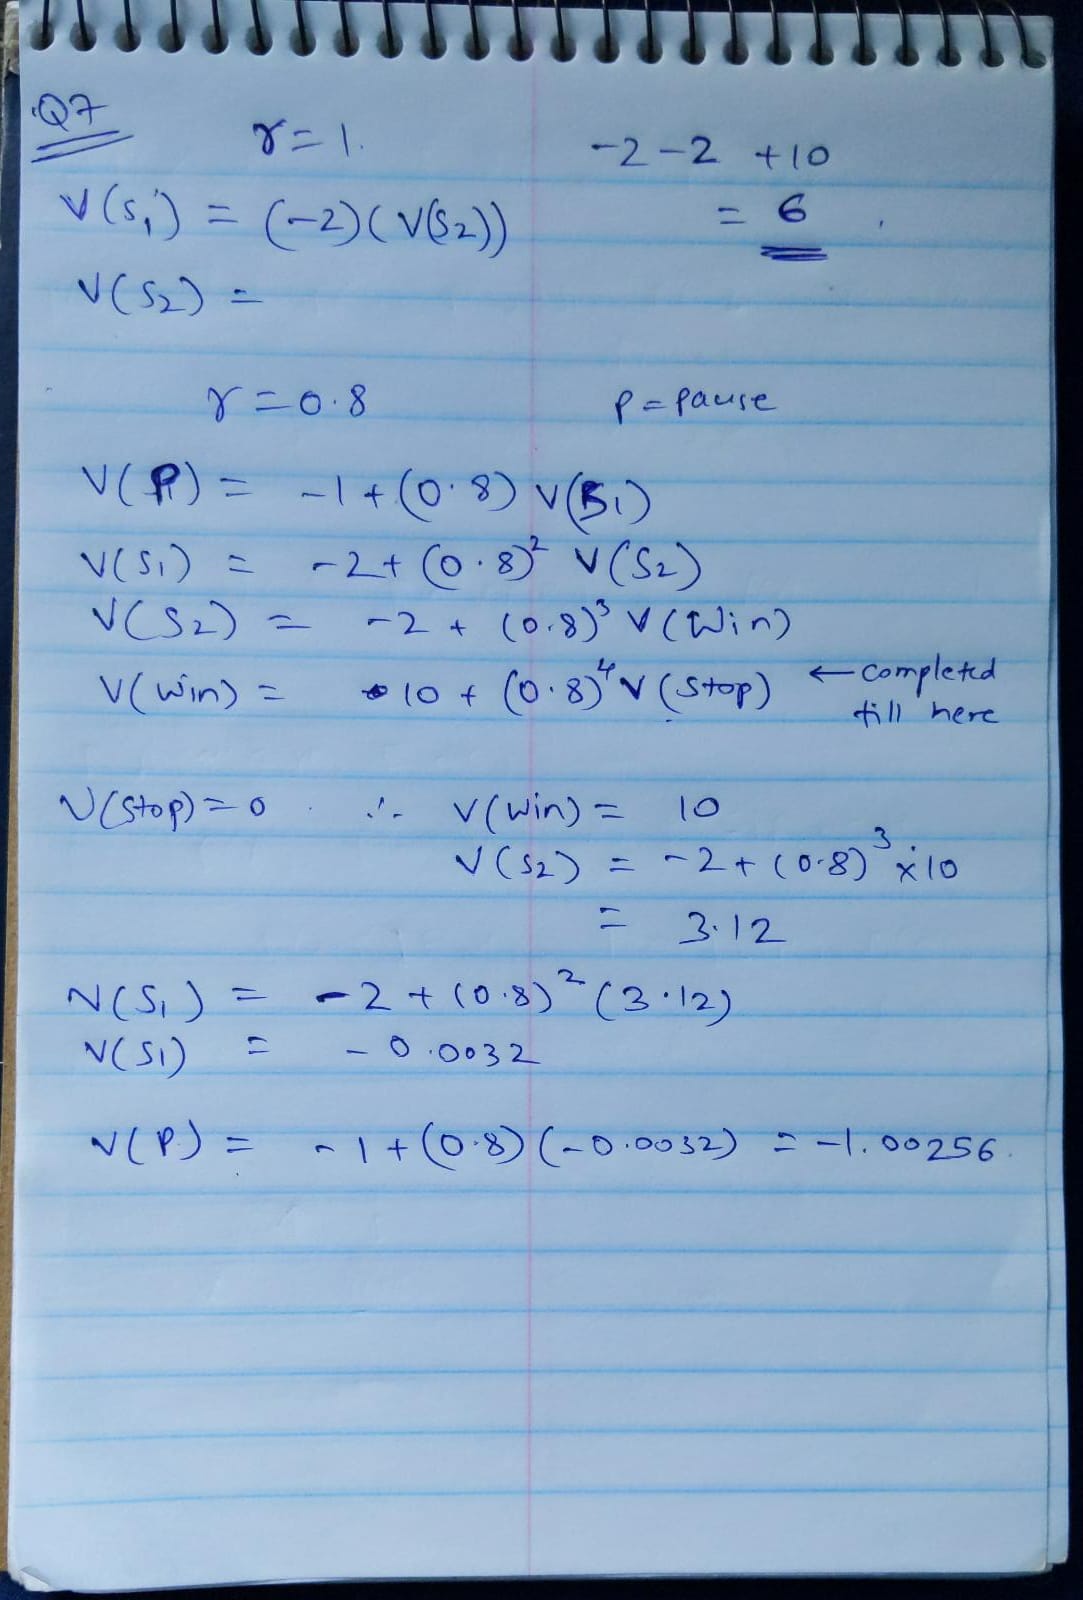 Q7
γ = 1. -2 -2 +10
V(S₁) = (-2)(V(S₂)) = 6
V(S₂) =
γ = 0.8 P = Pause
V(P) = -1 + (0.8) V(S₁)
V(S₁) = -2 + (0.8)² V(S₂)
V(S₂) = -2 + (0.8)³ V(Win)
V(Win) = 10 + (0.8)⁴ V(Stop) ← completed
till here
V(Stop) = 0 ∴ V(Win) = 10
V(S₂) = -2 + (0.8)³ × 10
= 3.12
V(S₁) = -2 + (0.8)² (3.12)
V(S₁) = -0.0032
V(P) = -1 + (0.8)(-0.0032) = -1.00256.